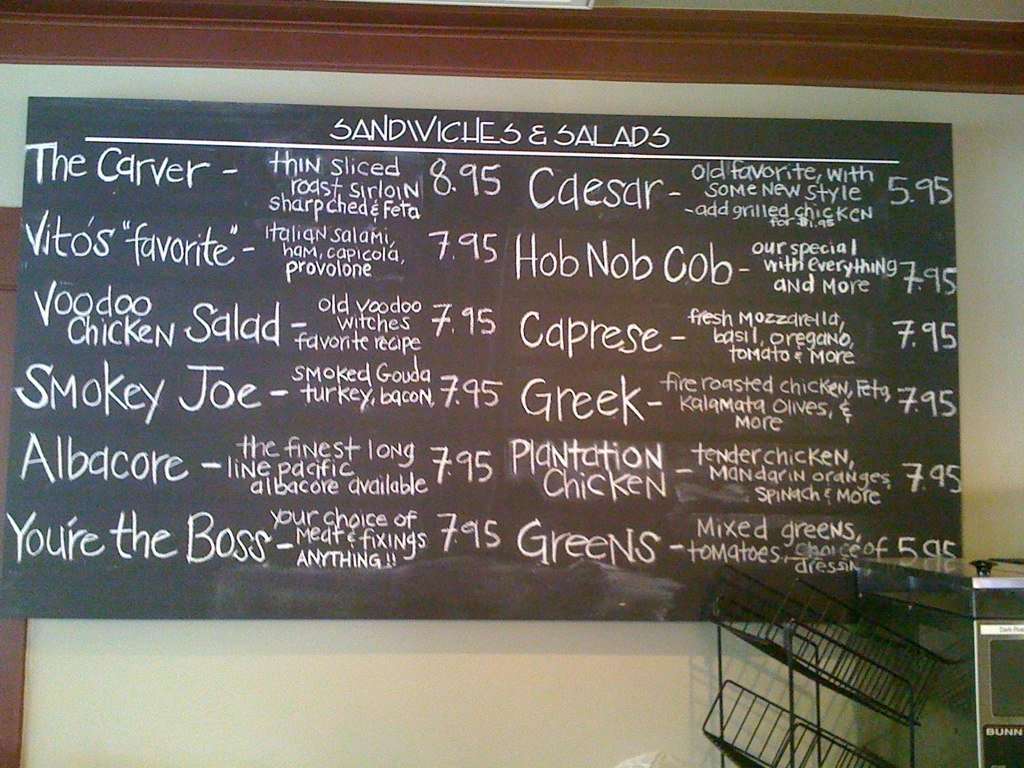 SANDWICHES & SALADS
The Carver - thin sliced 8.95
roast sirloin
sharp ched & Feta
Vito's "favorite" - Italian salami, 7.95
ham, capicola,
provolone
Voodoo
Chicken Salad - old voodoo 7.95
witches
favorite recipe
Smokey Joe - smoked Gouda 7.95
turkey, bacon,
Albacore - the finest long 7.95
line pacific
albacore available
You're the Boss - your choice of 7.95
meat & fixings
ANYTHING!!
Caesar - old favorite, with 5.95
some new style
- add grilled chicken
for $1.95
Hob Nob Cob - our special 7.95
with everything
and more
Caprese - fresh mozzarella, 7.95
basil, oregano,
tomato & more
Greek - fire roasted chicken, Feta, 7.95
Kalamata olives, &
more
Plantation
Chicken - tender chicken, 7.95
mandarin oranges,
spinach & more
Greens - Mixed greens, 5.95
tomatoes, choice of
dressin
BUNN